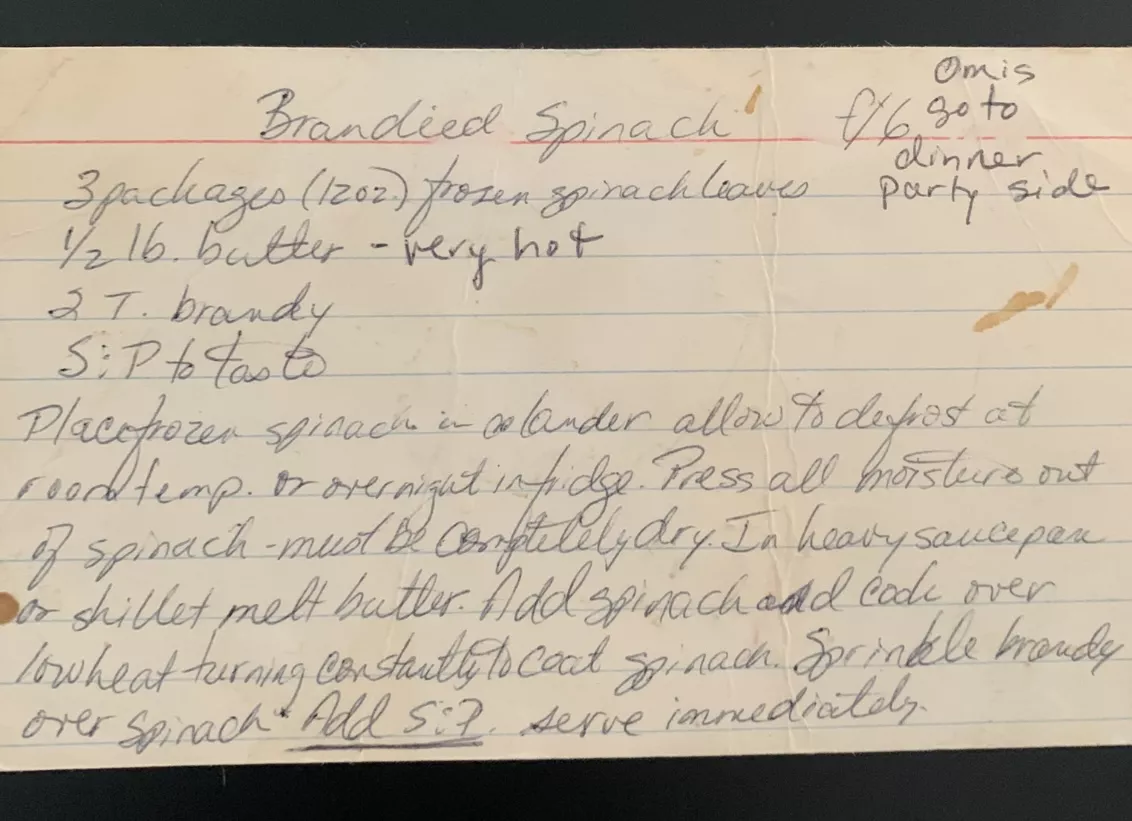 Brandied Spinach f/6
Omis
go to
dinner
party side
3 packages (12oz.) frozen spinach leaves
1/2 lb. butter - very hot
2 T. brandy
S:P to taste
Place frozen spinach in colander allow to defrost at
room temp. or overnight in fridge. Press all moisture out
of spinach - must be completely dry. In heavy saucepan
or skillet melt butter. Add spinach and cook over
low heat turning constantly to coat spinach. Sprinkle brandy
over spinach. Add S:P. serve immediately.